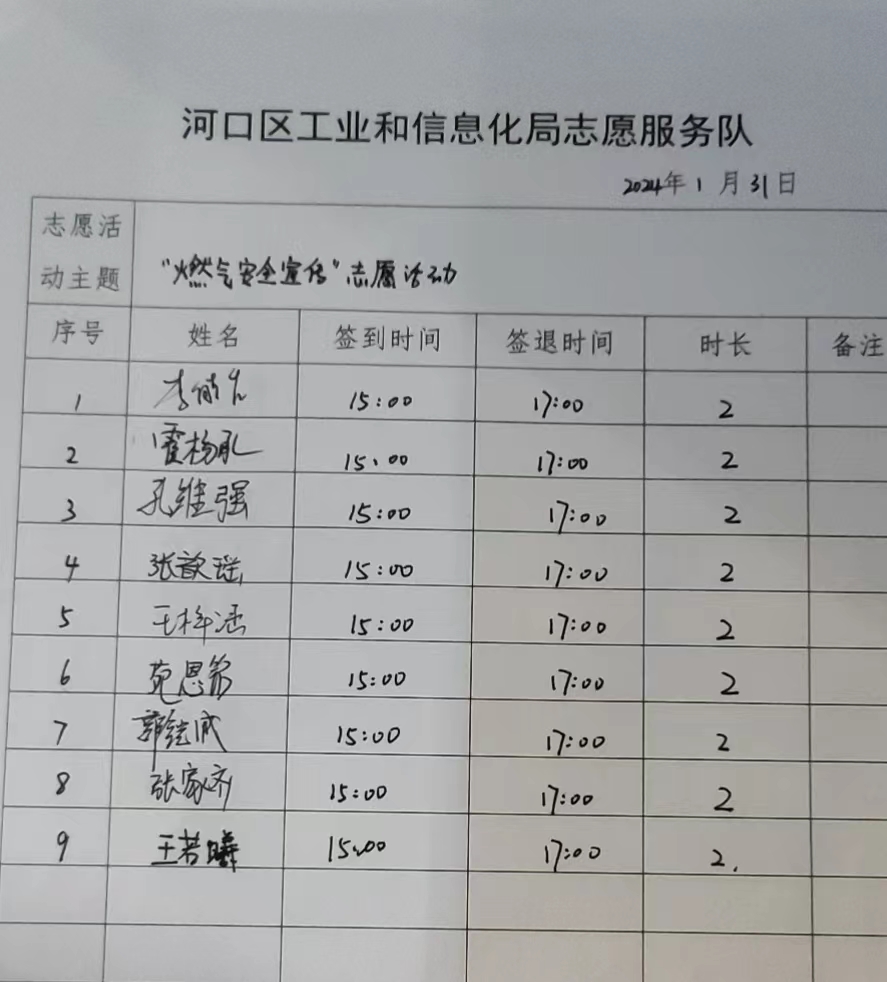 河口区工业和信息化局志愿服务队
2024年1月31日
志愿活动主题 "燃气安全宣传"志愿活动
序号 姓名 签到时间 签退时间 时长 备注
1 李 15:00 17:00 2
2 霍杨 15:00 17:00 2
3 孔维强 15:00 17:00 2
4 张歆瑶 15:00 17:00 2
5 王梓涵 15:00 17:00 2
6 苑思 15:00 17:00 2
7 郭 成 15:00 17:00 2
8 张家齐 15:00 17:00 2
9 王若曦 15:00 17:00 2.